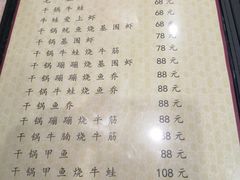 68元
干锅牛蛙 68元
牛蛙爱上虾 68元
干锅鱿鱼烧基围虾 78元
干锅基围虾 78元
干锅蹦蹦烧牛筋 88元
干锅蹦蹦烧鱼乔 88元
干锅鱼乔 88元
干锅蹦蹦烧牛蛙 88元
干锅牛肠烧牛筋 88元
干锅甲鱼 88元
干锅甲鱼烧牛蛙 108元